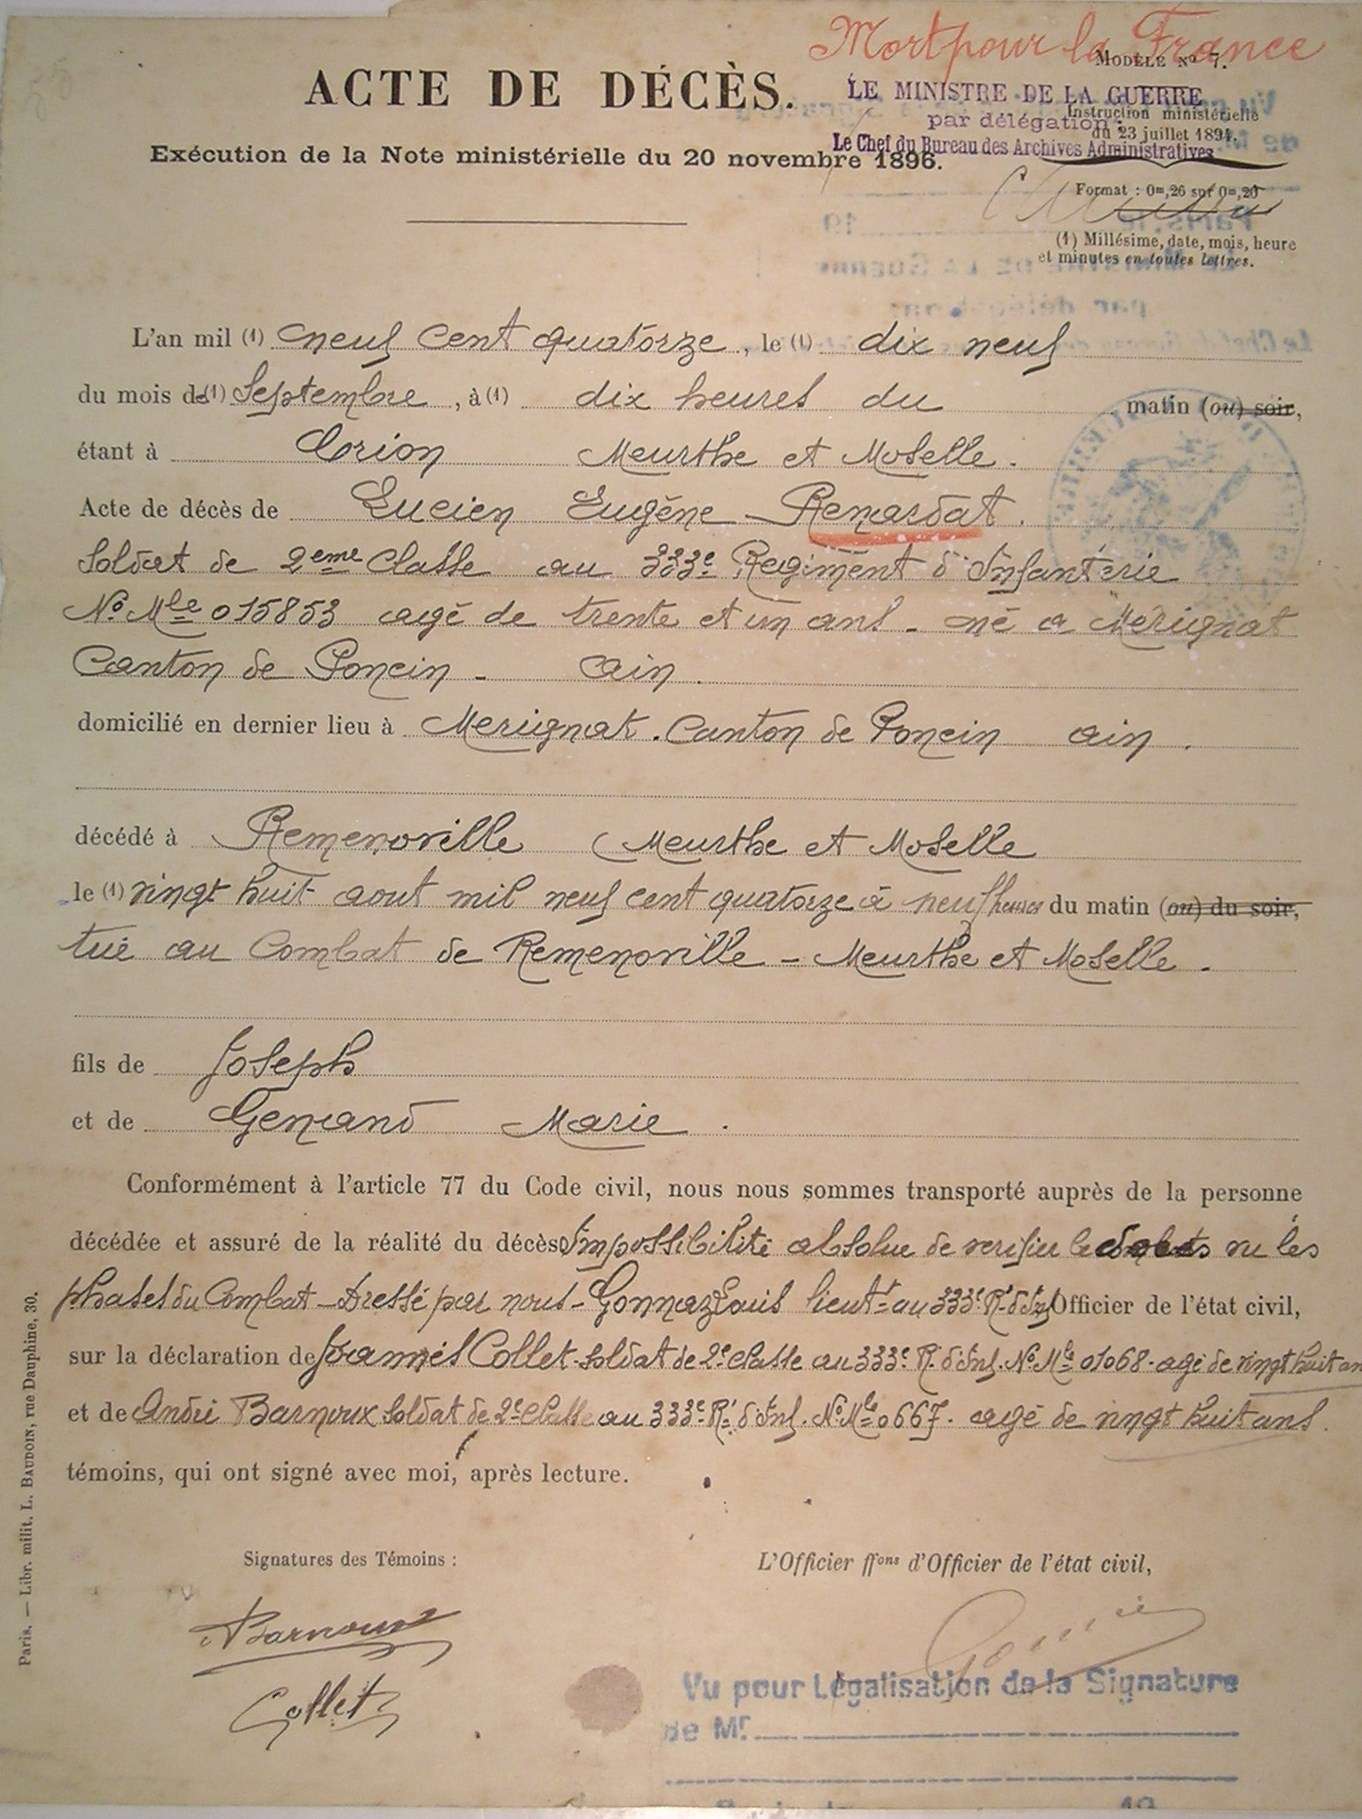 Mort pour la France
MODÈLE No 7.
ACTE DE DÉCÈS.
LE MINISTRE DE LA GUERRE
Instruction ministérielle
par délégation :
du 23 juillet 1894.
Le Chef du Bureau des Archives Administratives
Exécution de la Note ministérielle du 20 novembre 1896.
Format : 0m,26 sur 0m,20
(1) Millésime, date, mois, heure
et minutes en toutes lettres.
L'an mil (1) neuf cent quatorze, le (1) dix neuf
du mois de (1) Septembre, à (1) dix heures du matin (ou) soir,
étant à Lorion Meurthe et Moselle.
Acte de décès de Lucien Eugène Renardat.
Soldat de 2eme Classe au 333e Regiment d'Infanterie
No Mle 015853 agé de trente et un ans - né a Mérignat
Canton de Poncin - ain.
domicilié en dernier lieu à Merignat. Canton de Poncin ain.
décédé à Remenoville Meurthe et Moselle
le (1) vingt huit aout mil neuf cent quatorze à neuf heures du matin (ou) du soir,
tué au Combat de Remenoville - Meurthe et Moselle.
fils de Joseph
et de Genand Marie.
Conformément à l'article 77 du Code civil, nous nous sommes transporté auprès de la personne
décédée et assuré de la réalité du décès Impossibilité absolue de verifier le vu les
phases du Combat - Dressé par nous - Gonnaz Louis lieutt au 333e Rt d'Inf Officier de l'état civil,
sur la déclaration de Joannès Collet - soldat de 2e classe au 333e R. d'Inf. No Mle 01068 - agé de vingt huit an
et de André Barnoux soldat de 2e Classe au 333e Rt d'Inf. No Mle 0667 - agé de vingt huit ans.
témoins, qui ont signé avec moi, après lecture.
Signatures des Témoins :
L'Officier ffons d'Officier de l'état civil,
Barnoux
Collet
Vu pour Légalisation de la Signature
de Mr.
Paris. — Libr. milit. L. BAUDOIN, rue Dauphine, 30.